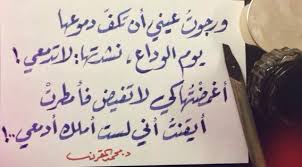 ورجوتُ عيني أن تكفّ دموعها
يوم الوداع، نشدتها: لا تدمعي!
أغمضتُها كي لا تفيض فأمطرتْ
أيقنتُ أني لست أملك أدمعي..!
د.محمد